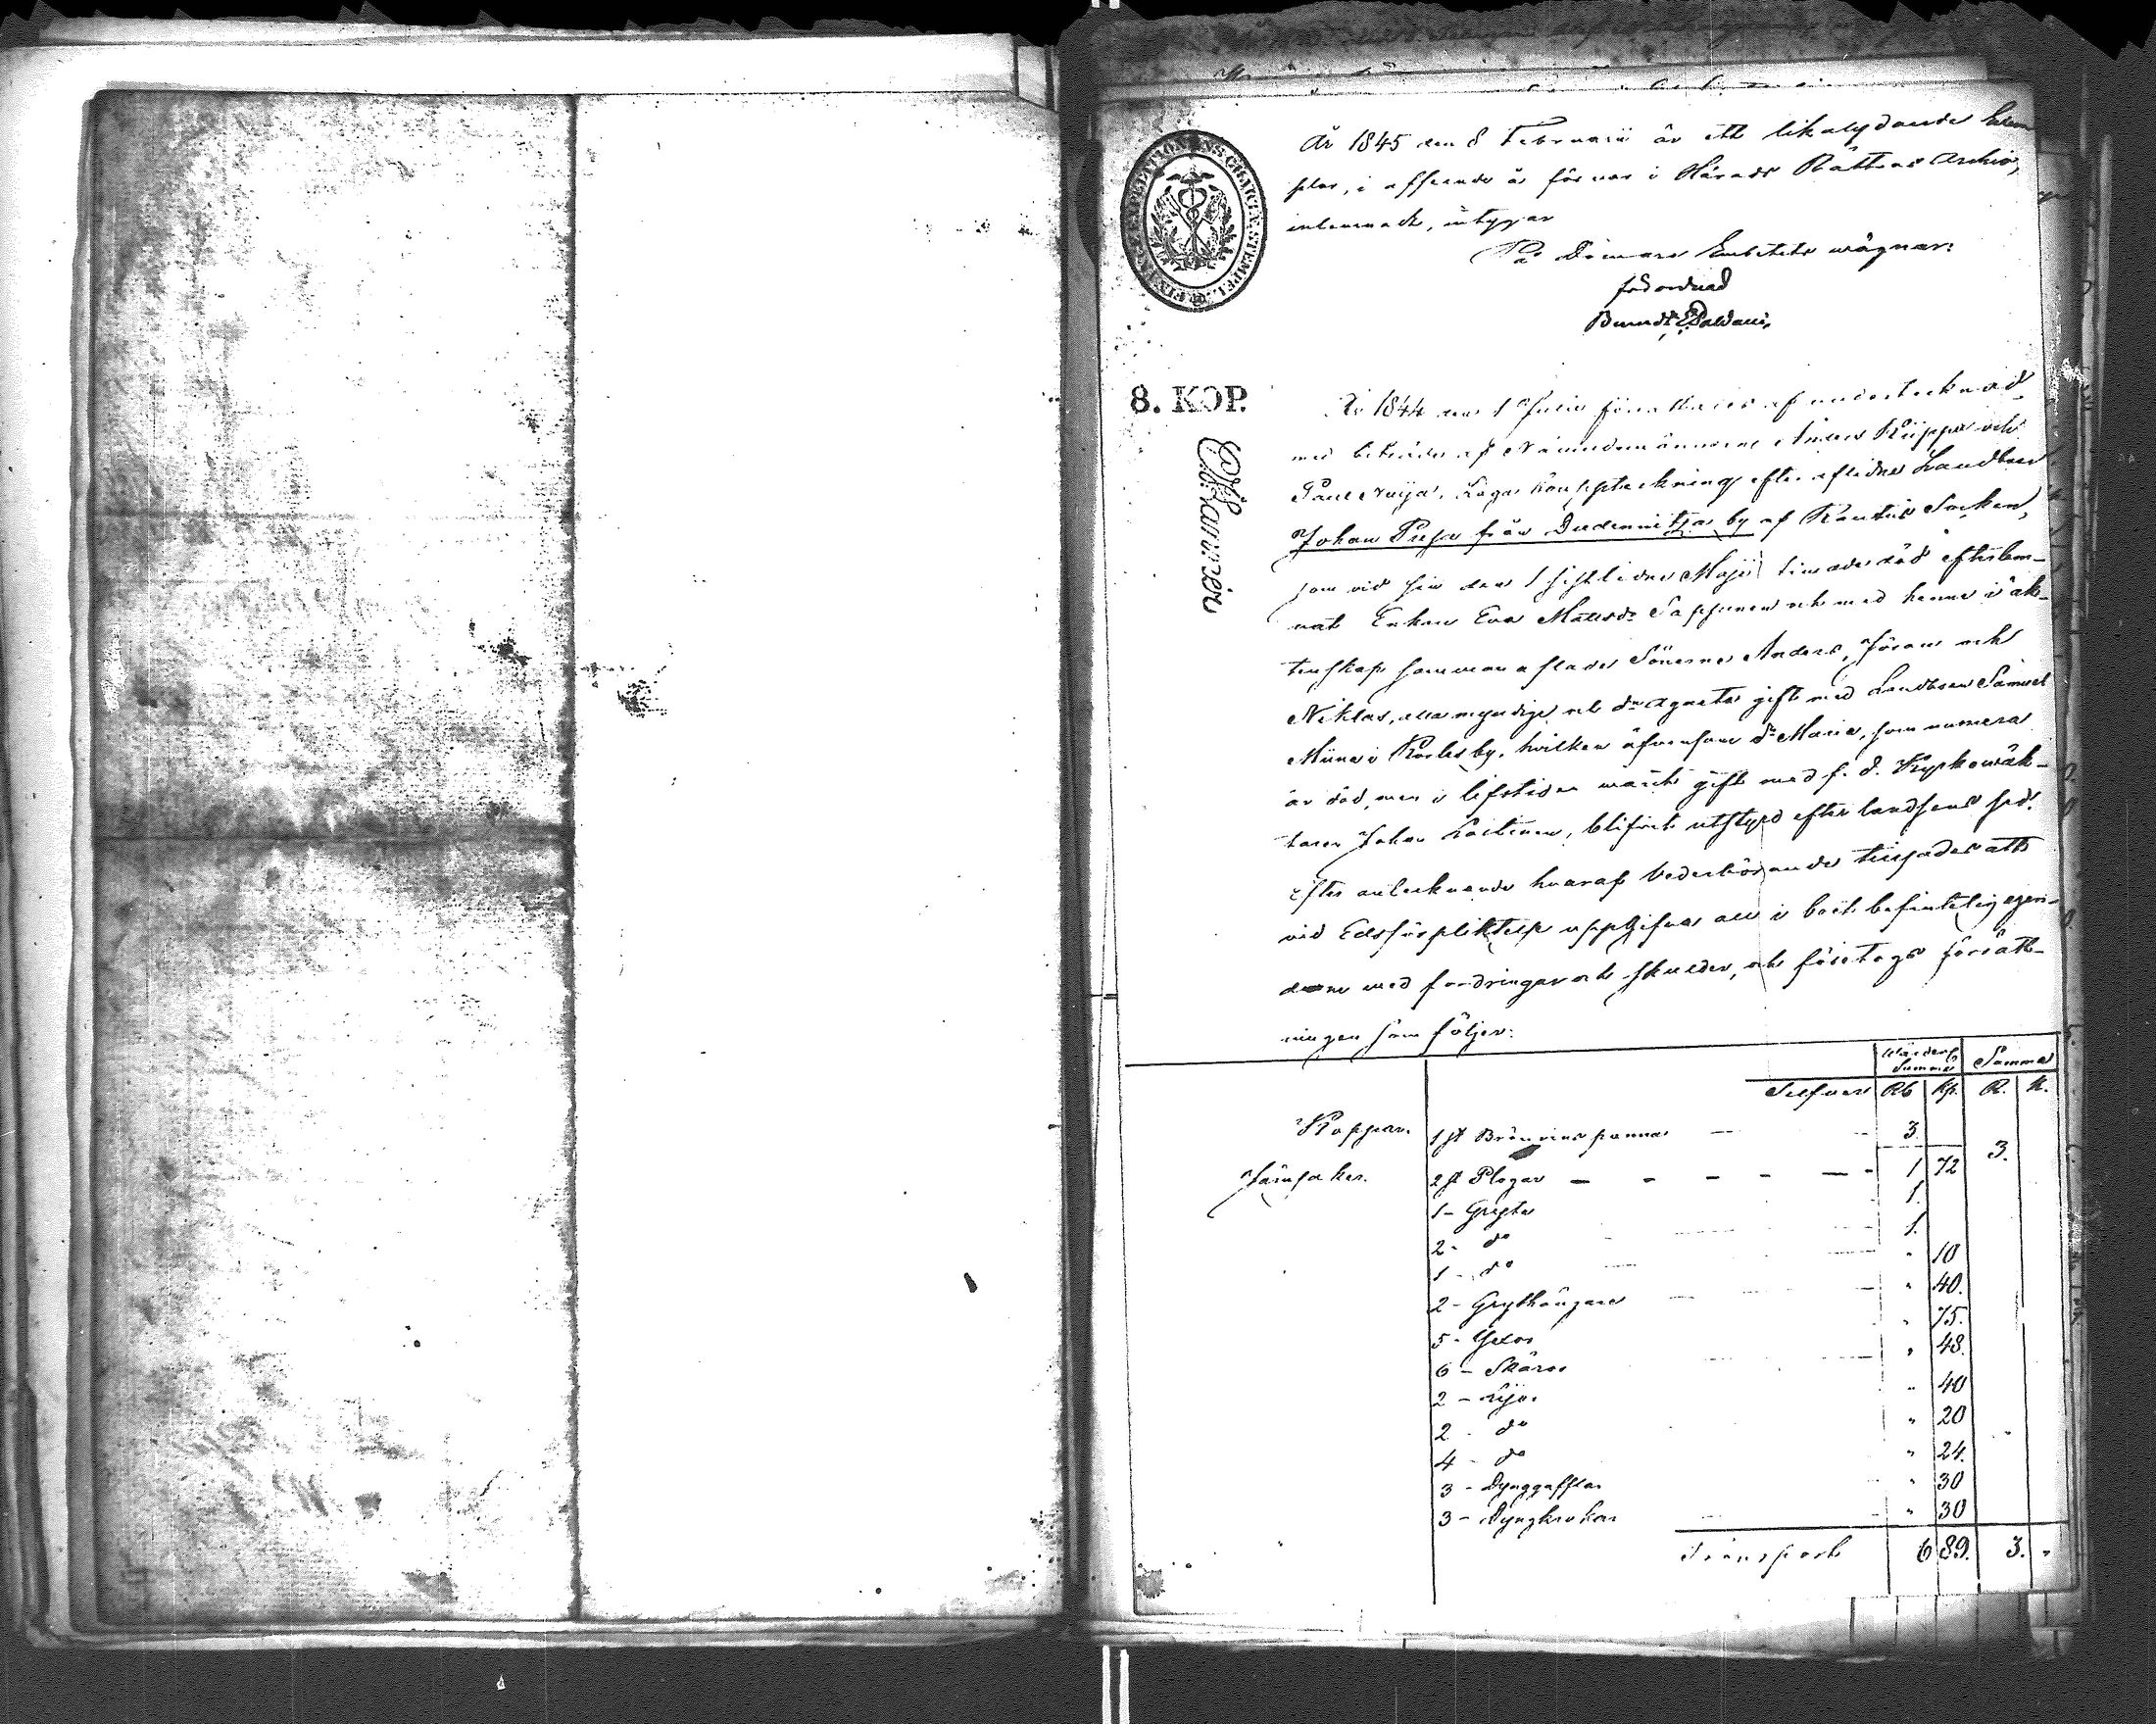 År 1845 den 8 Februarii är ett likalydande Exem
plar, i afseende å förvar i Härads Rättens Archiv,
inlemnadt, intygar
På Domare Embetets wägnar:
förordnad
EXPEDITIONENS CHARTÆ STEMPEL
8. KOP.
År 1844 den 1 Junii förrättades af undertecknad
med biträde af Nämndemännerne Anders Kiippa och
Paul Laga bouppteckning efter aflidne Landboen
Johan Pusa från by af Rautus Socken,
som vid sin den 1 sistlidne Maji timade död efterlem-
nat Enkan Eva Mattsdr Tappinen och med henne i äk-
tenskap sammanaflade Sönerne Anders, Jöran och
Niklas, alla myndige och dn Agneta gift med Landboen Samuel
i by, hvilken äfvensom dn Maria, som numera
är död, men i lifstiden warit gift med f. d.
taren Johan blifvit utstyrd efter landsens sed.
Efter antecknande hvaraf vederbörande tillsades att
vid Edsförpliktelse uppgifva all i boët befintelig egen-
dom med fordringar och skulder, och företogs förrätt-
ningen som följer:
Värderings
Summa Summa
Silfver Rb Kp. R. K.
Koppar. 1 st Brännvins panna 3. 3.
Järnsaker. 2 st Plogar 1 72
1 - Gryta 1.
2 - do 1.
1 - do " 10
2 - Grythängare " 40.
5 - Yxor " 75.
6 - Skäror " 48.
2 - Lijor " 40
2 - do " 20
4 - do " 24.
3 - Dynggafflar " 30
3 - Dyngkrokar " 30
Transport 6 89. 3. "